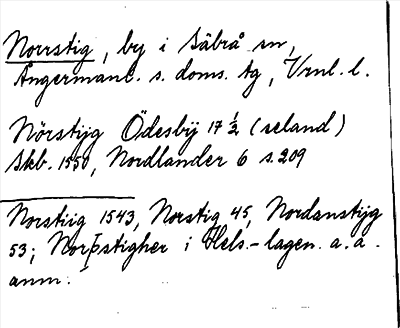 Norrstig, by i Säbrå sn,
Ångermanl. s. doms. tg, Vrnl. l.
Nörstijg Ödesbÿ 17 ½ (seland)
Skb. 1550, Nordlander 6 s. 209
Norstiig 1543, Norstig 45, Nordanstijg
53; Norþstigher i Hels.-lagen. a. a.
anm.